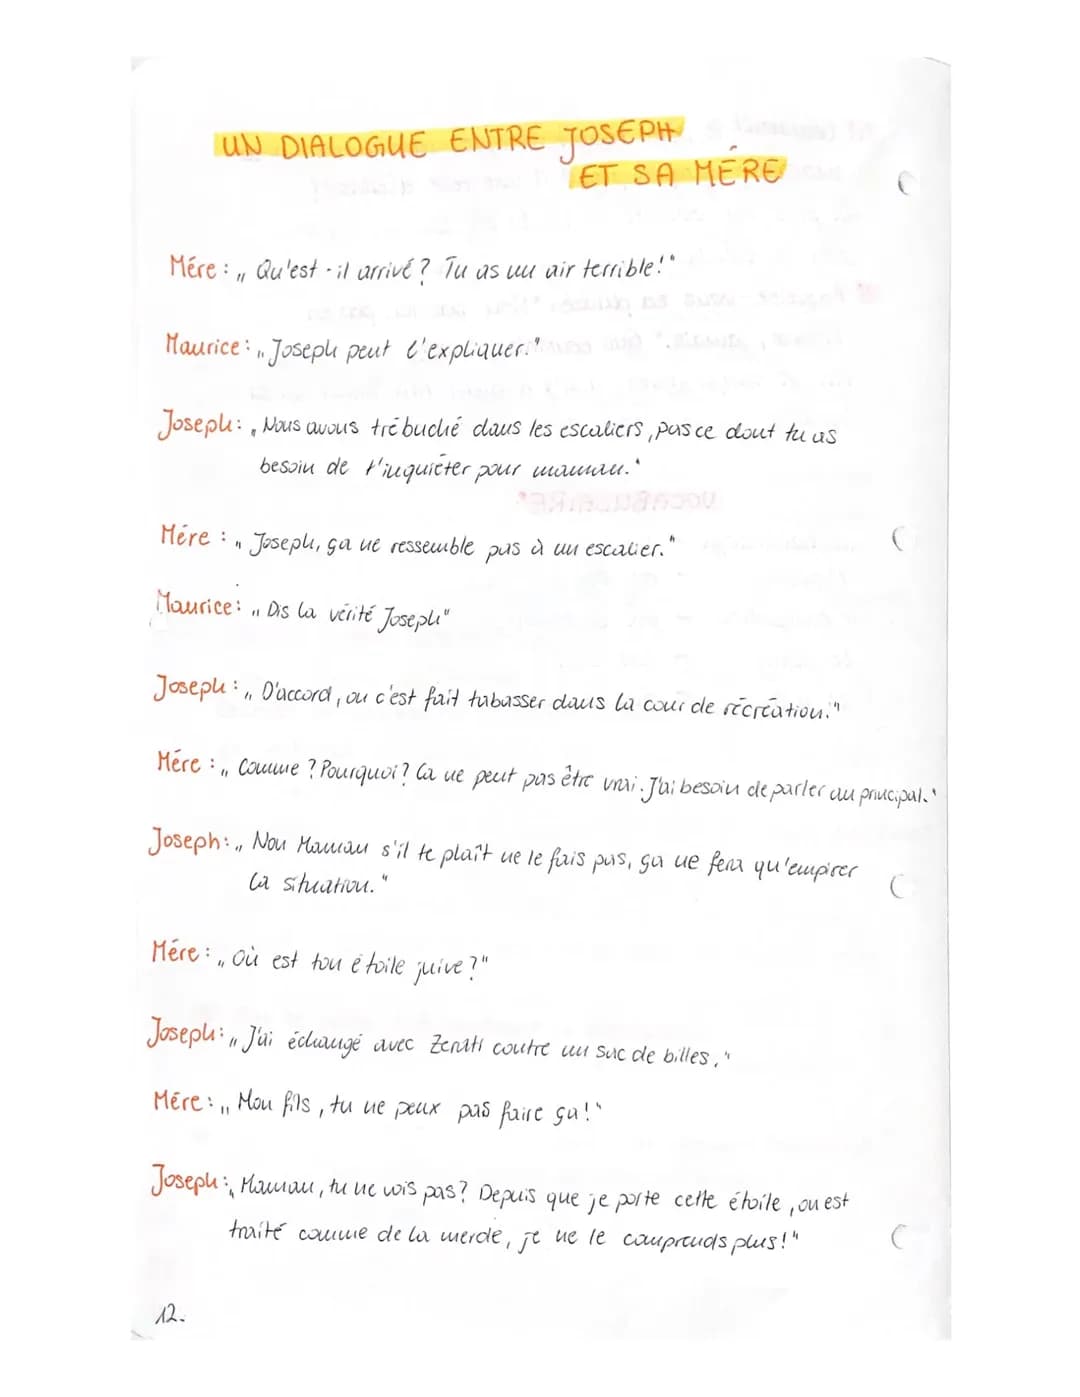 UN DIALOGUE ENTRE JOSEPH
ET SA MÉRE
Mére : „ Qu'est - il arrivé ? Tu as un air terrible!"
Maurice : „ Joseph peut l'expliquer."
Joseph : „ Nous avons trébuché dans les escaliers, pas ce dont tu as
besoin de t'inquiéter pour maman."
Mére : „ Joseph, ça ne ressemble pas à un escalier."
Maurice : „ Dis la vérité Joseph"
Joseph : „ D'accord, on c'est fait tabasser dans la cour de récréation."
Mére : „ Comme ? Pourquoi? Ca ne peut pas être vrai. J'ai besoin de parler au principal."
Joseph : „ Non Maman s'il te plaît ne le fais pas, ça ne fera qu'empirer
la situation."
Mére : „ Où est ton étoile juive ?"
Joseph : „ J'ai échangé avec Zerati contre un sac de billes."
Mére : „ Mon fils, tu ne peux pas faire ça!"
Joseph : „ Maman, tu ne vois pas? Depuis que je porte cette étoile, on est
traité comme de la merde, je ne le comprends plus!"
12.